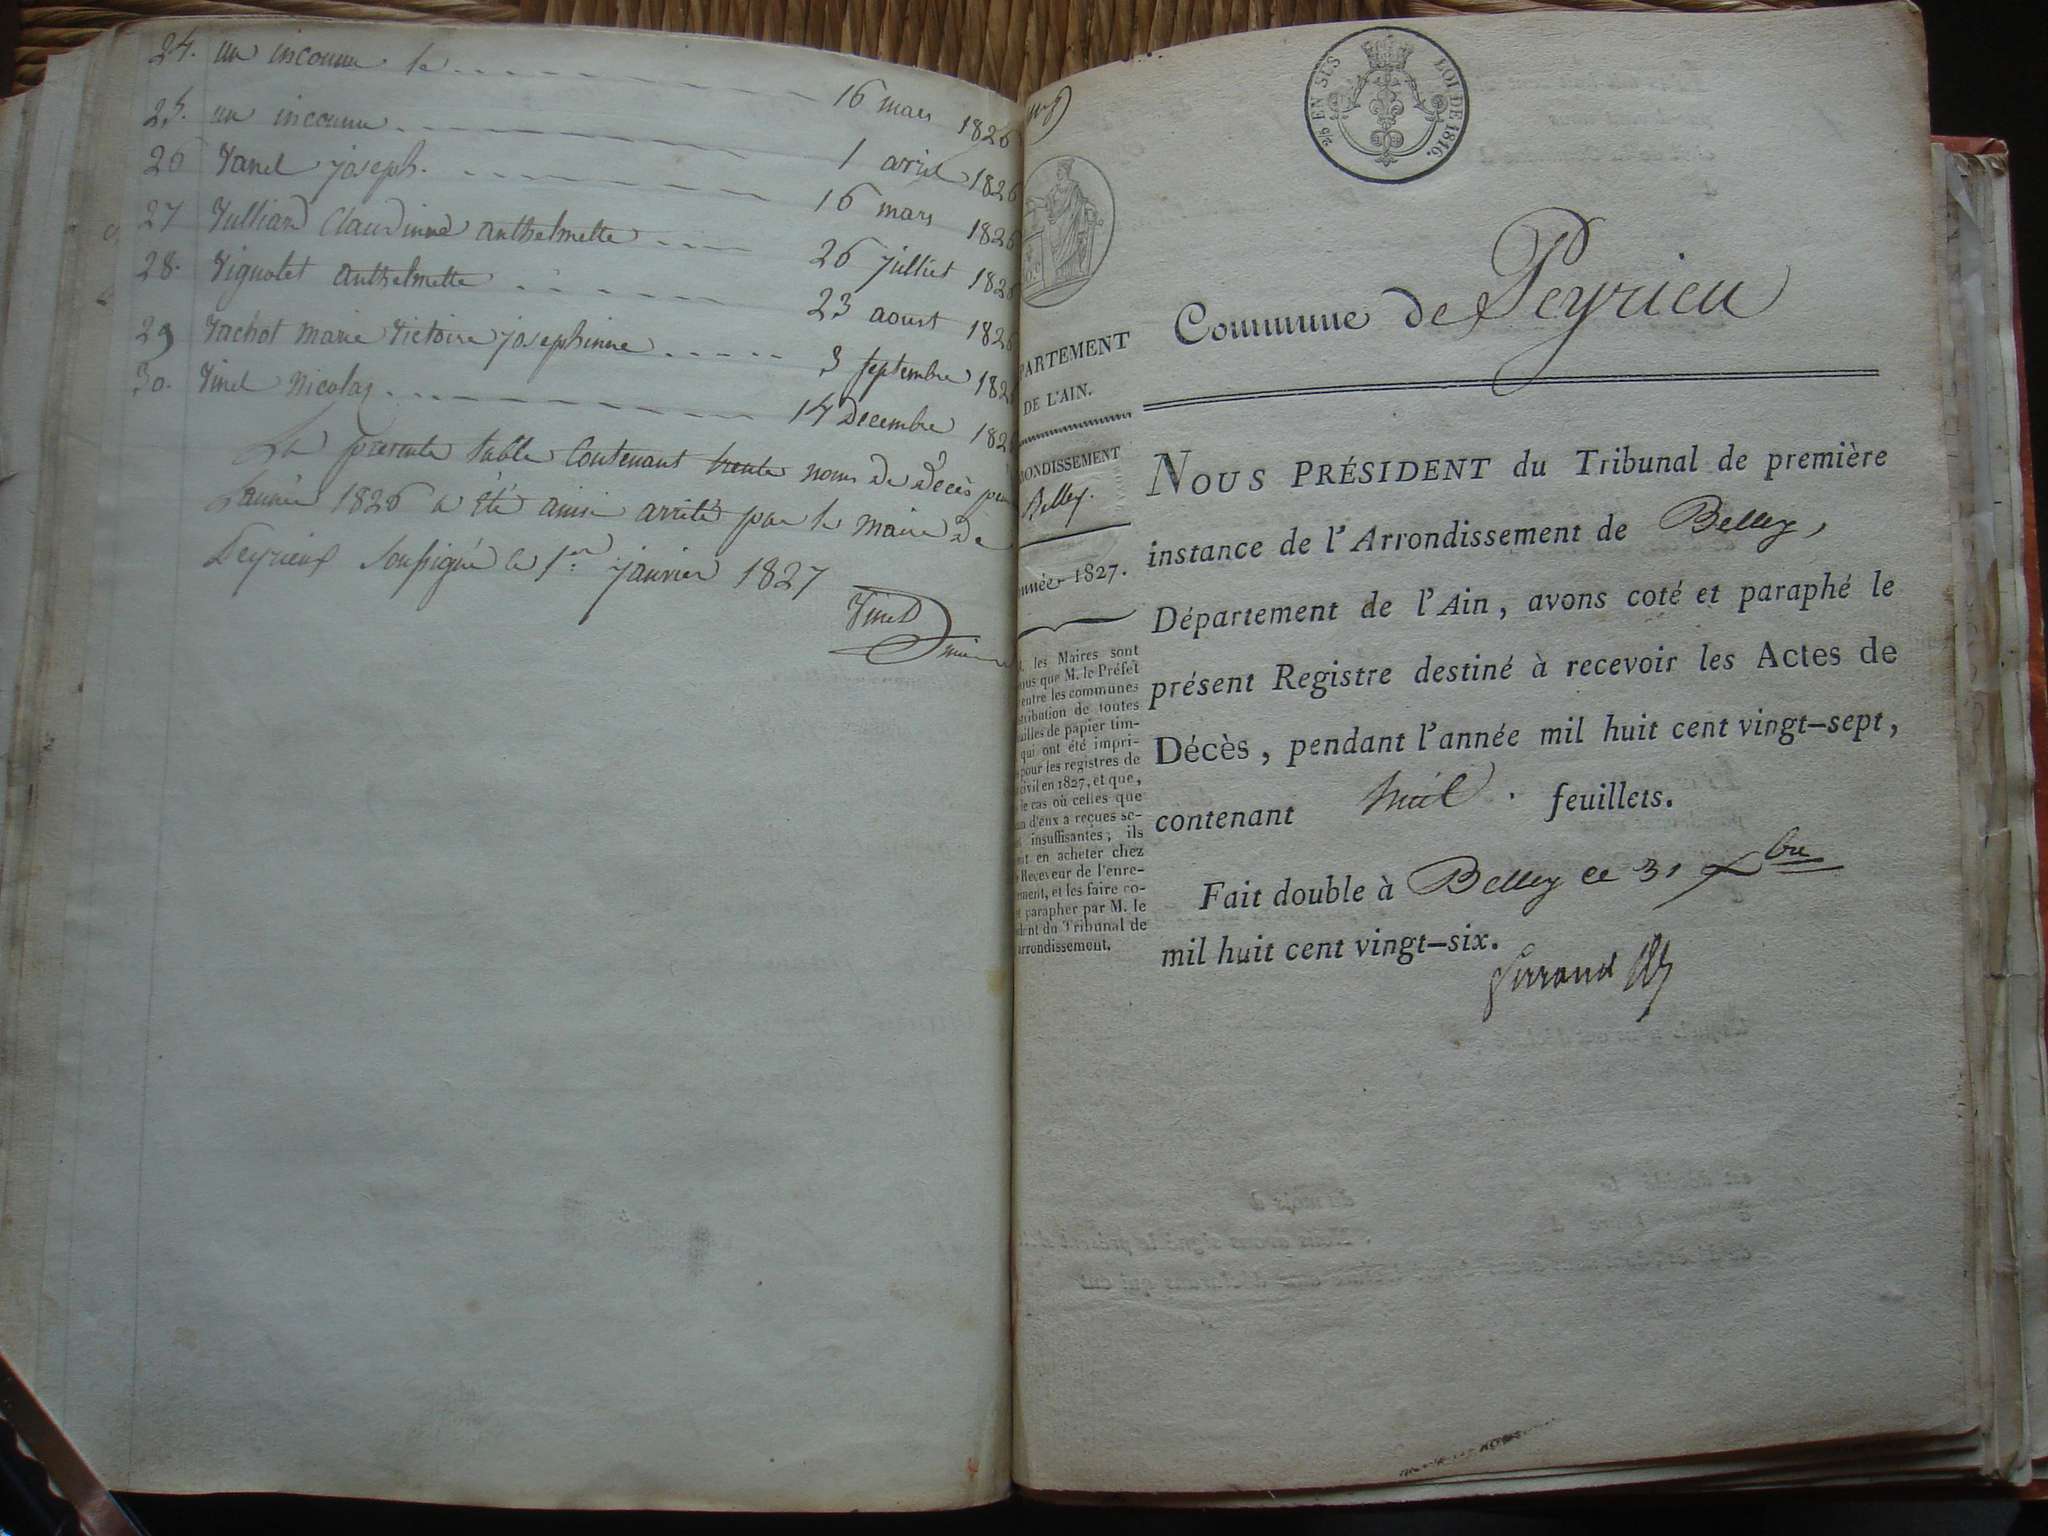 24. un inconnu le 16 mars 1826
25. un inconnu 1 avril 1826
26 Vanel joseph. 16 mars 1826
27 Vullian Claudinne anthelmette 26 julliet 1826
28. Vignolet anthelmette 23 aoust 1826
29 Vachot marie Victoire josephinne 3 septembre 182
30. Vinel Nicolas 14 Decembre 182
La présente table Contenant trente noms de Décès pour
L'année 1826 a été ainsi arrêté par le maire de
Peyrieux soussigné le 1er janvier 1827
Vinel
2/10 EN SUS
LOI DE 1816.
Commune de Peyrieu
PARTEMENT
DE L'AIN.
RONDISSEMENT
Belley.
nnée 1827.
les Maires sont
ous que M. le Préfet
entre les communes
stribution de toutes
uilles de papier tim-
qui ont été impri-
pour les registres de
civil en 1827, et que,
le cas où celles que
un d'eux a reçues se-
insuffisantes, ils
nt en acheter chez
Receveur de l'enre-
ement, et les faire co-
t parapher par M. le
ident du Tribunal de
arrondissement.
NOUS PRÉSIDENT du Tribunal de première
instance de l'Arrondissement de Belley,
Département de l'Ain, avons coté et paraphé le
présent Registre destiné à recevoir les Actes de
Décès, pendant l'année mil huit cent vingt-sept,
contenant huit feuillets.
Fait double à Belley ce 31 Xbre
mil huit cent vingt-six.